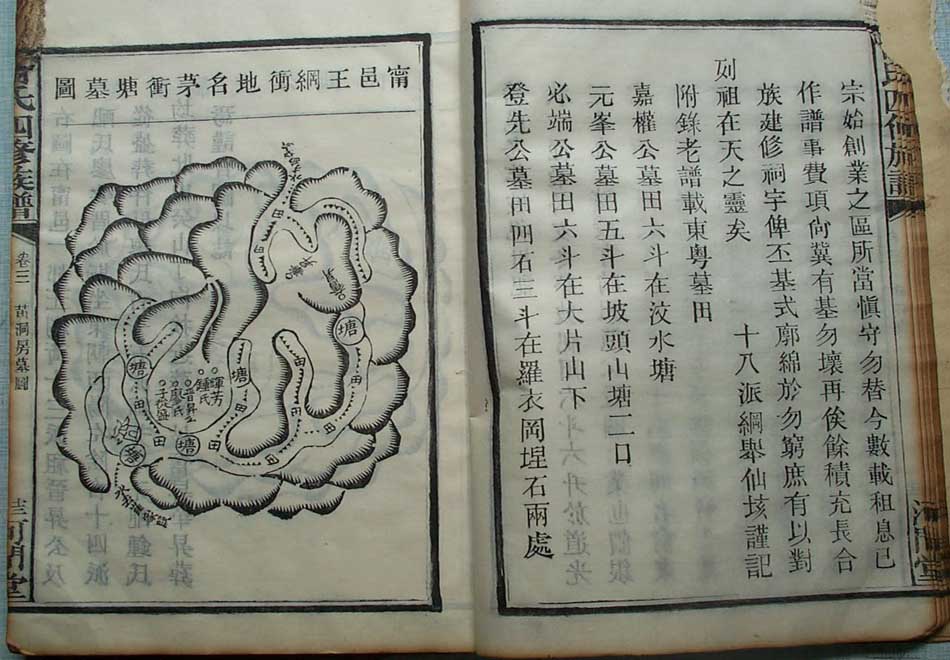 宗始創業之區所當慎守勿替今數載租息已
作譜事費項尙冀有基勿壞再俟餘積充長合
族建修祠宇俾丕基式廓綿於勿窮庶有以對
列
祖在天之靈矣　十八派綱舉仙垓謹記
附錄老譜載東粵墓田
嘉權公墓田六斗在汶水塘
元峯公墓田五斗在坡頭山塘二口
必端公墓田六斗在大片山下
登先公墓田四石三斗在羅衣岡埕石兩處
甯邑王綱衝地名茅衝塘墓圖
田
田
塘
塘
塘
塘
田
田
田
田
輝芳
鍾氏
晉昇公
廖氏
氏四修族譜
卷三
黃洞房墓圖